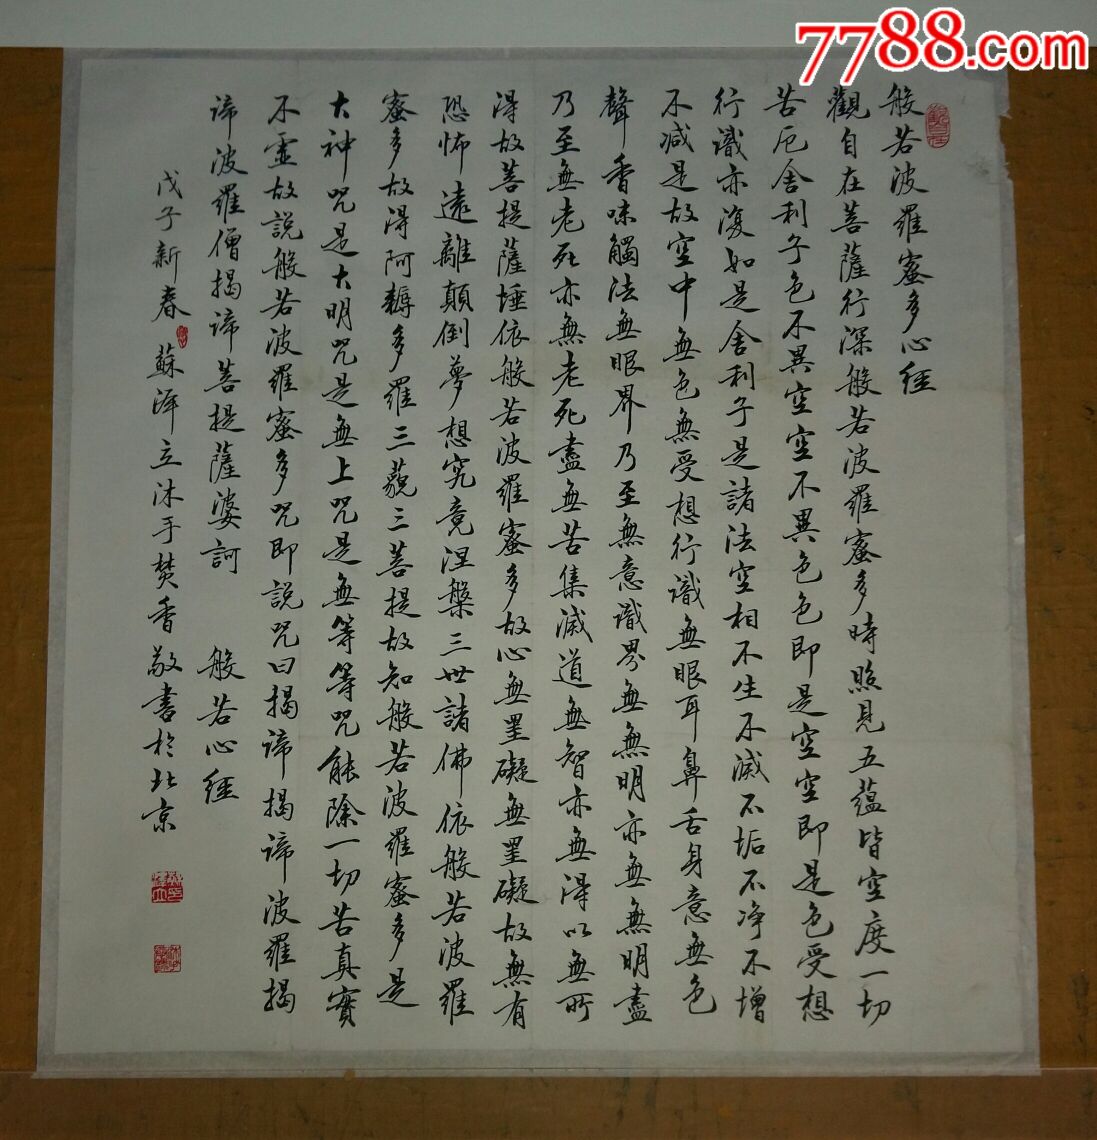 7788.com
觀自在
般若波羅蜜多心經
觀自在菩薩行深般若波羅蜜多時照見五蘊皆空度一切
苦厄舍利子色不異空空不異色色即是空空即是色受想
行識亦復如是舍利子是諸法空相不生不滅不垢不净不增
不减是故空中無色無受想行識無眼耳鼻舌身意無色
聲香味觸法無眼界乃至無意識界無無明亦無無明盡
乃至無老死亦無老死盡無苦集滅道無智亦無得以無所
得故菩提薩埵依般若波羅蜜多故心無罣礙無罣礙故無有
恐怖遠離顛倒夢想究竟涅槃三世諸佛依般若波羅
蜜多故得阿耨多羅三藐三菩提故知般若波羅蜜多是
大神咒是大明咒是無上咒是無等等咒能除一切苦真實
不虛故說般若波羅蜜多咒即說咒曰揭諦揭諦波羅揭
諦波羅僧揭諦菩提薩婆訶 般若心經
戊子新春 蘇澤立沐手焚香敬書於北京